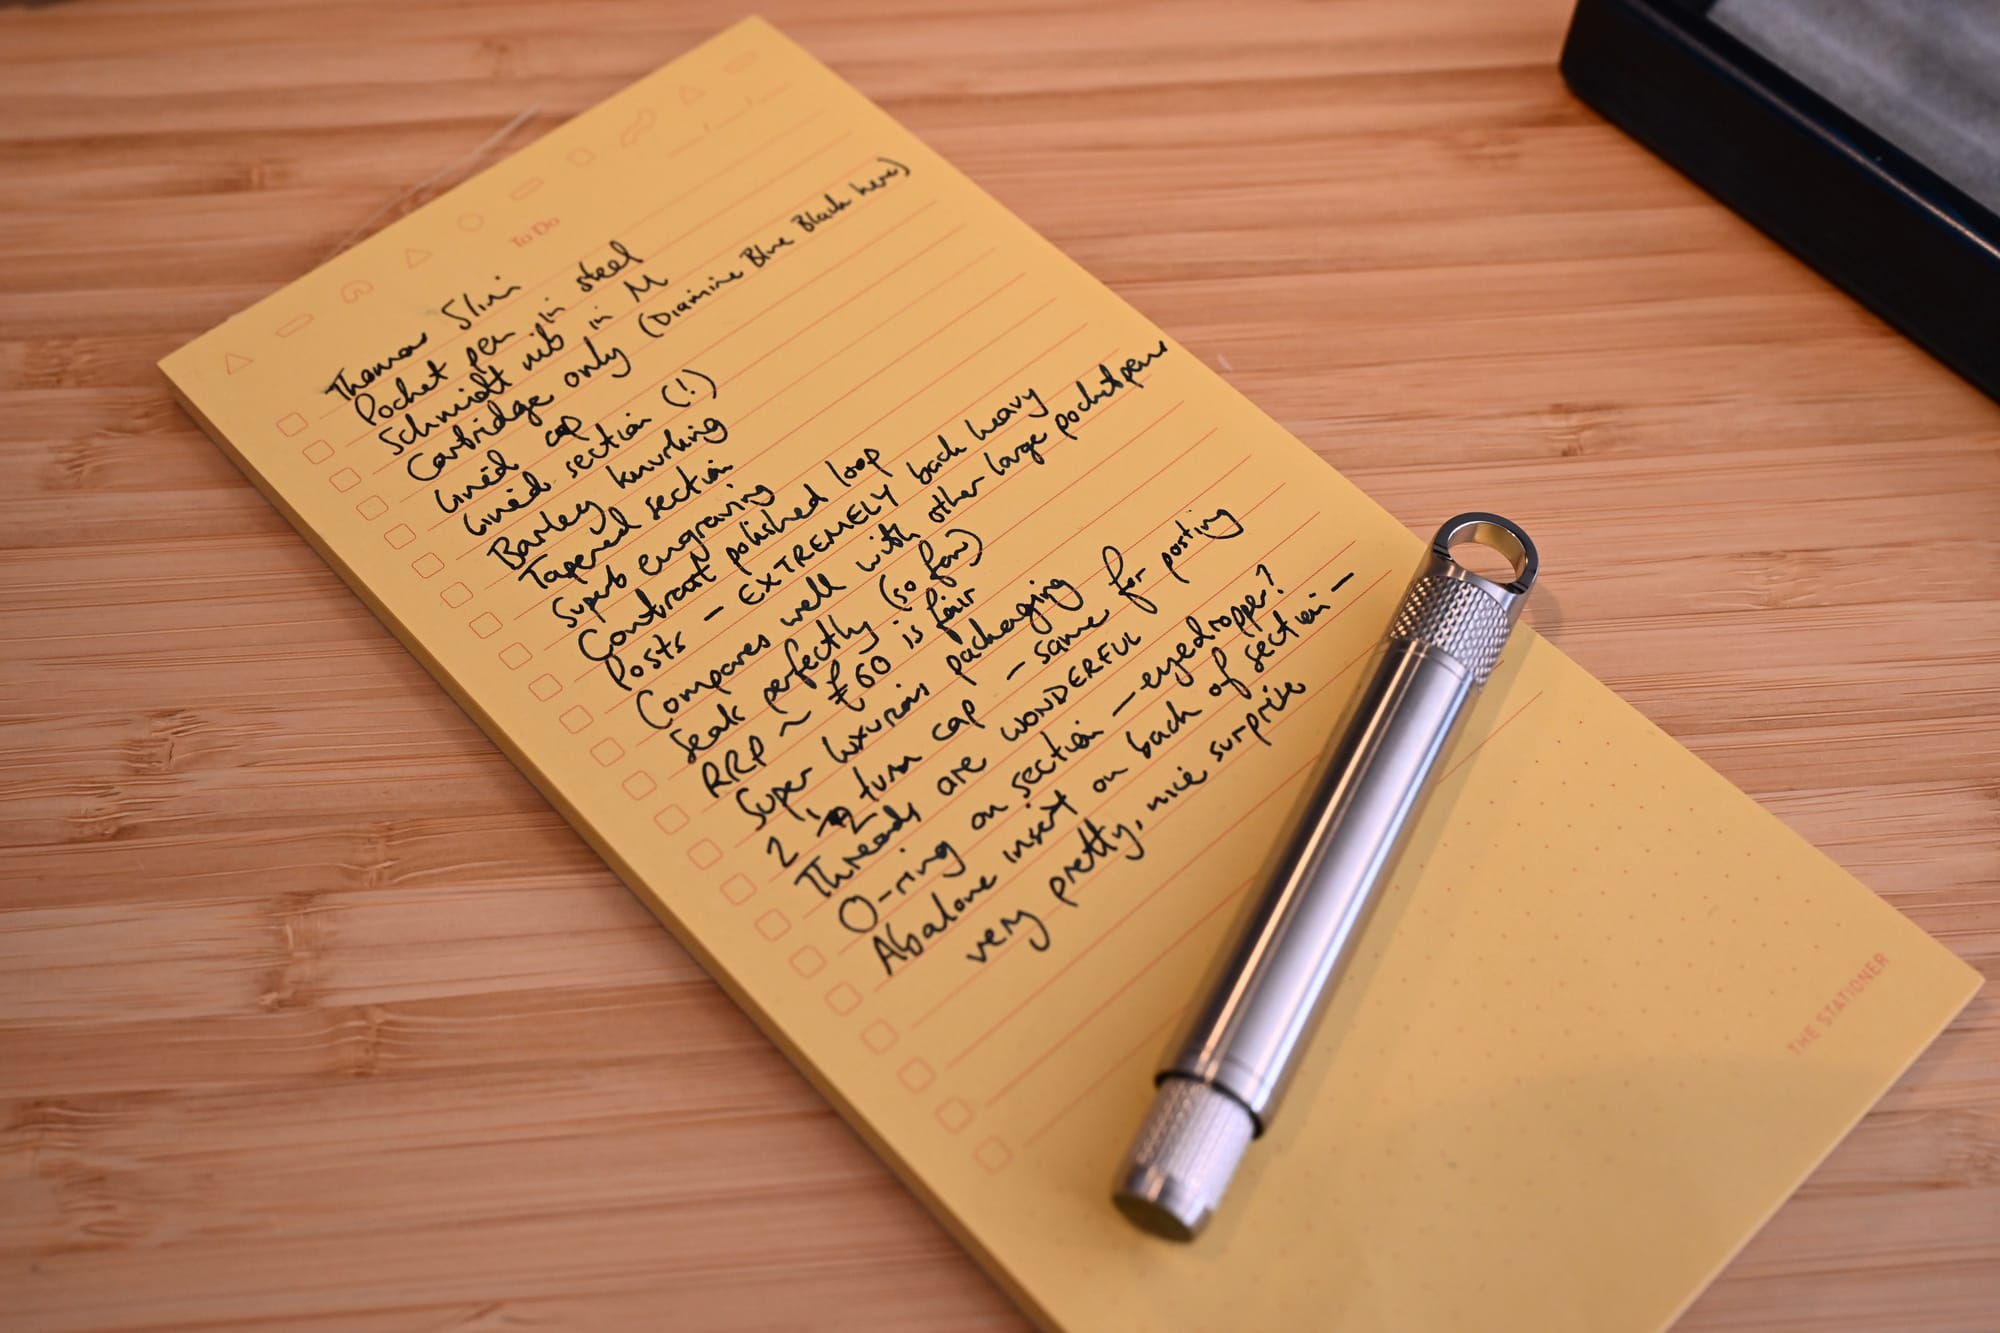 To Do
Thomas Slim
Pocket pen in steel
Schmidt nib in M
Cartridge only (Diamine Blue Black here)
Lined cap
Lined section (!)
Barley knurling
Tapered section
Superb engraving
Contrast polished loop
Posts - EXTREMELY back heavy
Compares well with other large pocket pens
Seals perfectly (so far)
RRP ~ £60 is fair
Super luxurious packaging
2 1/2 turn cap - same for posting
Threads are WONDERFUL
O-ring on section - eyedropper?
Abalone insert on back of section -
very pretty, nice surprise
THE STATIONER